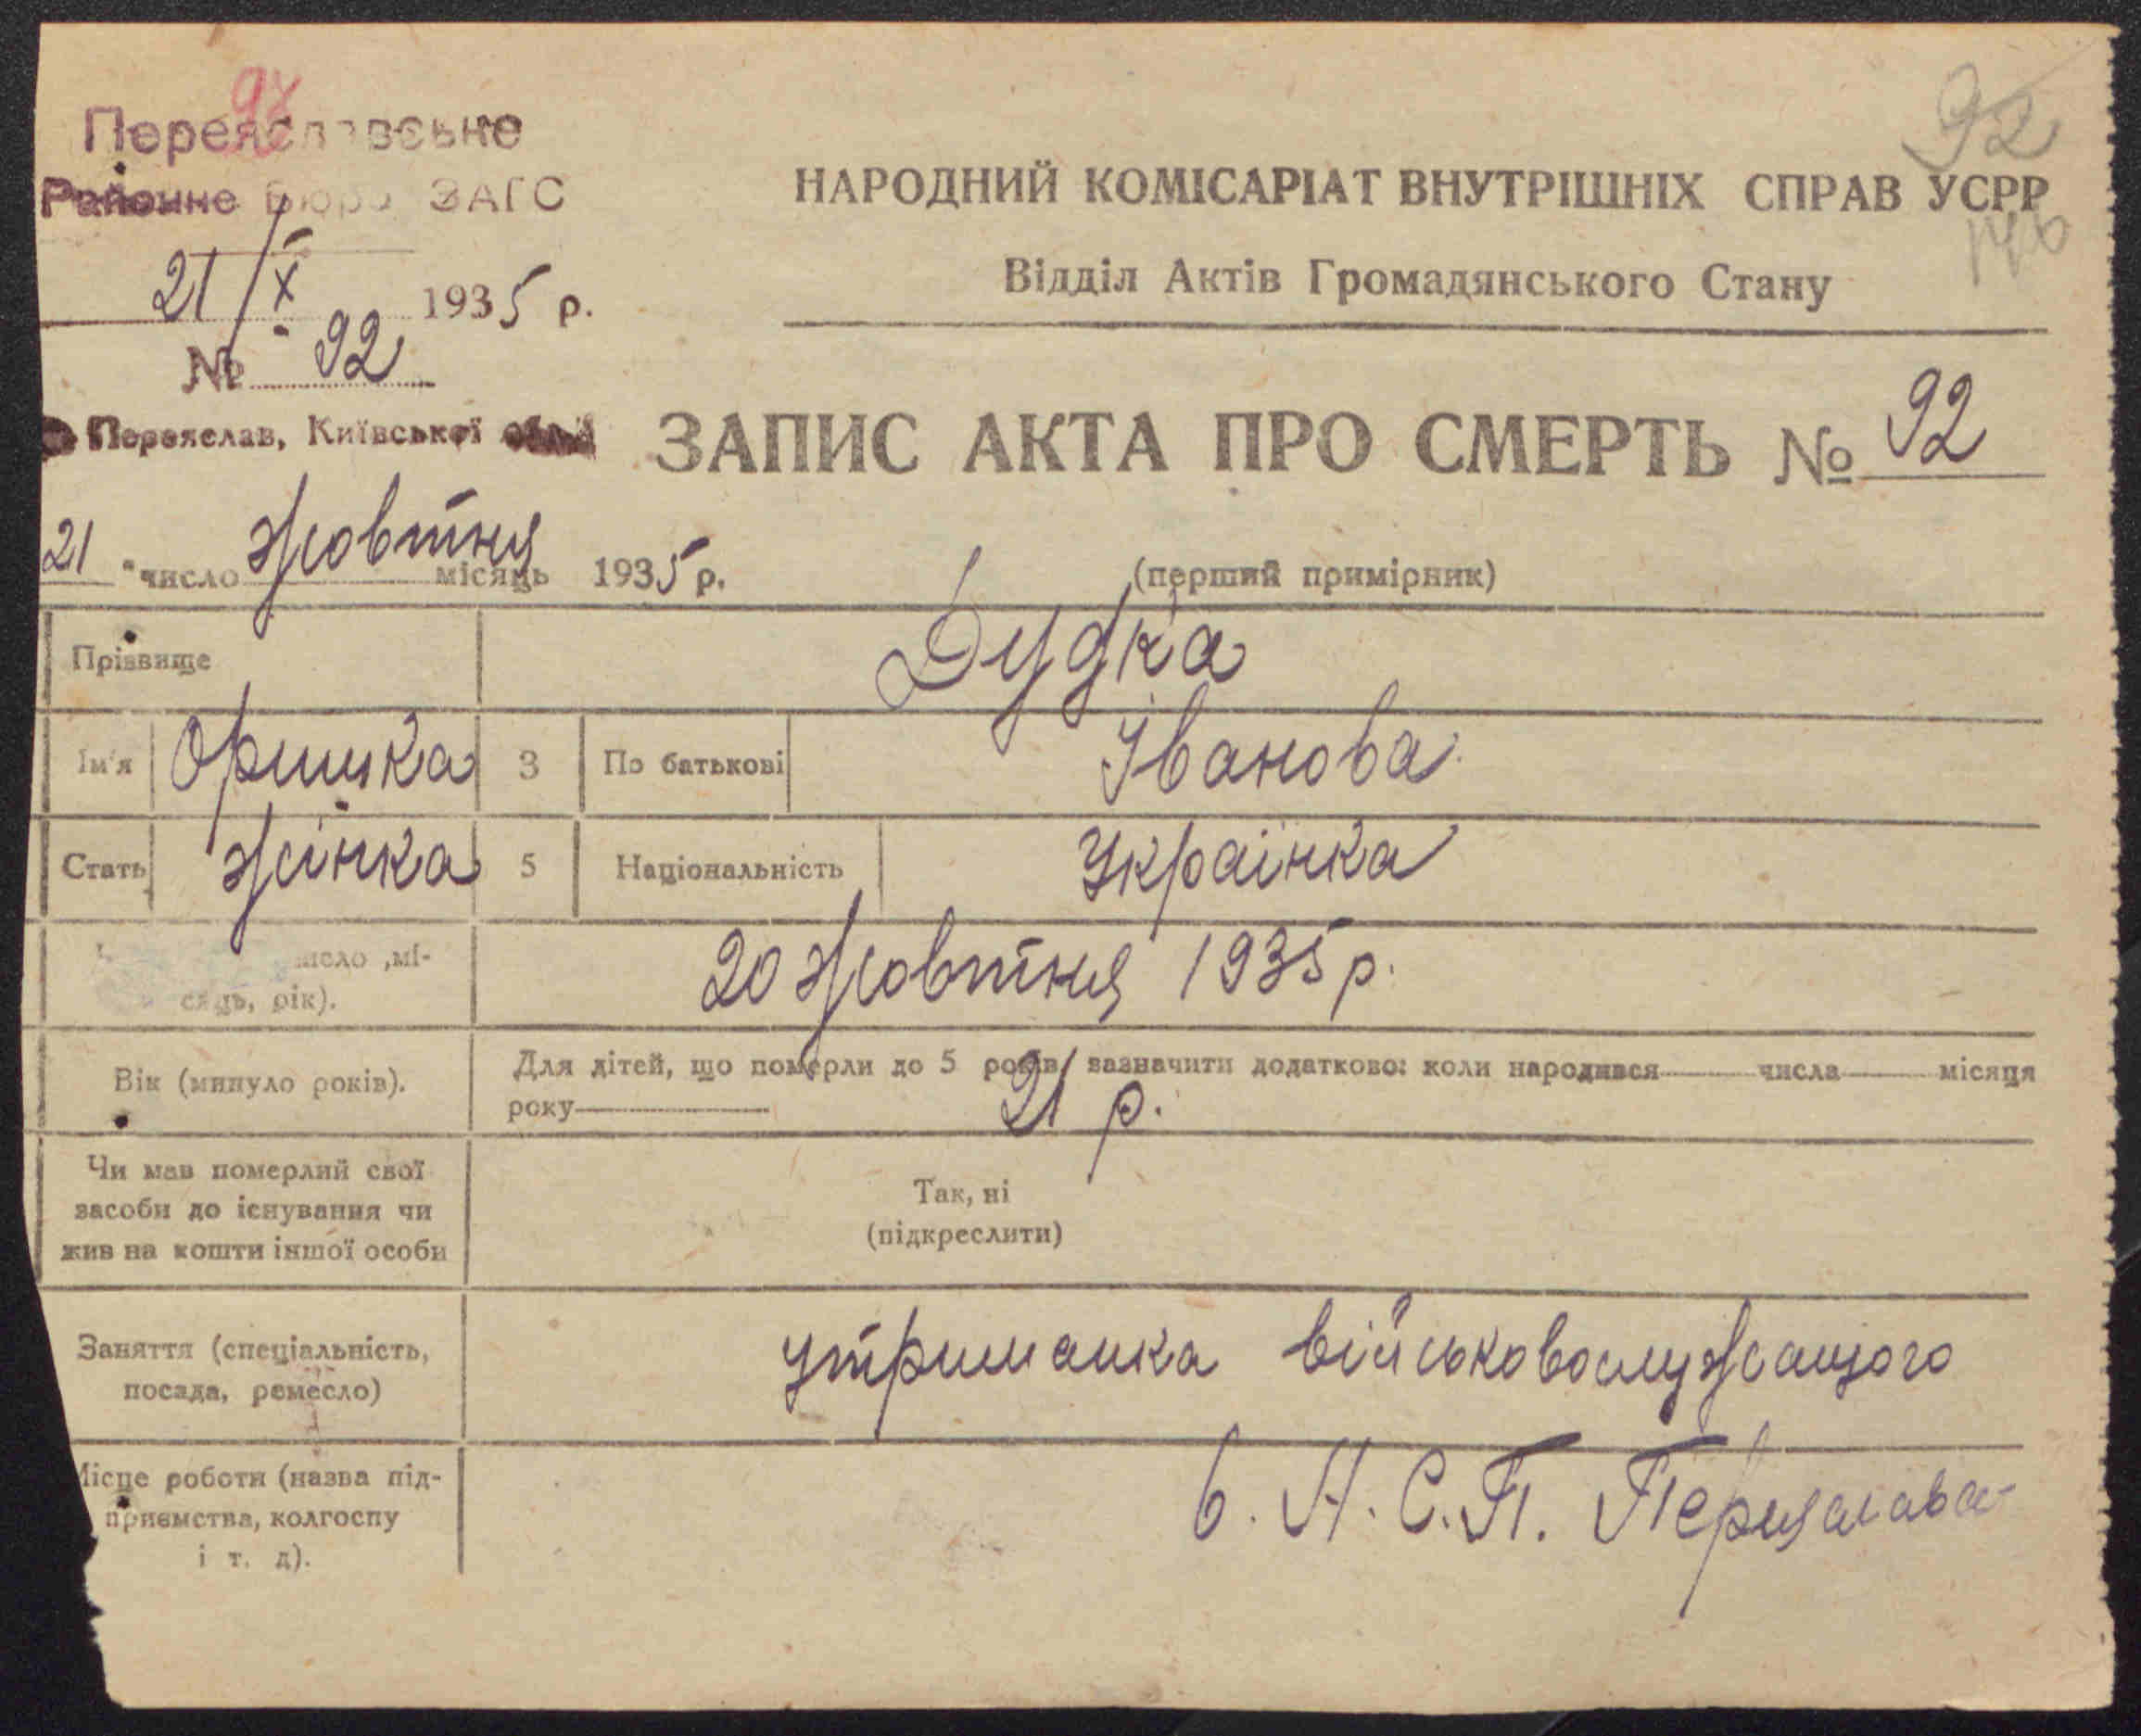 92
Переяславське
Районне Бюро ЗАГС
21/X 1935 р.
№ 92
Переяслав, Київської
92
НАРОДНИЙ КОМІСАРІАТ ВНУТРІШНІХ СПРАВ УСРР
Відділ Актів Громадянського Стану
ЗАПИС АКТА ПРО СМЕРТЬ № 92
21 число жовтня місяць 1935 р.
(перший примірник)
Прізвище Дудка
Ім'я Оришка 3 По батькові Іванова
Стать жінка 5 Національність Українка
число ,мі-
сяць, рік).
20 жовтня 1935 р.
Вік (минуло років).
Для дітей, що померли до 5 років зазначити додатково: коли народився числа місяця
року
21 р.
Чи мав померлий свої
засоби до існування чи
жив на кошти іншої особи
Так, ні
(підкреслити)
Заняття (спеціальність,
посада, ремесло)
утриманка військовослужащого
Місце роботи (назва під-
приємства, колгоспу
і т. д).
6. Н. С. П. Переяслава